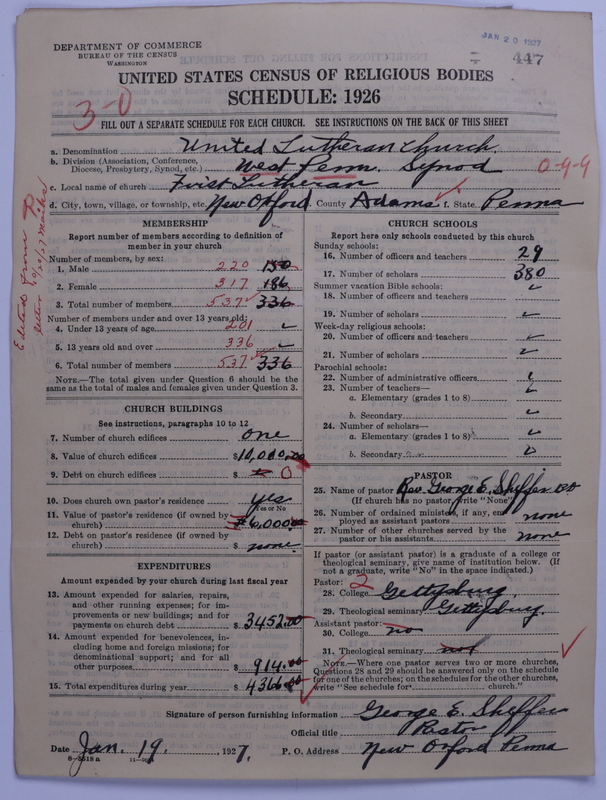 DEPARTMENT OF COMMERCE
BUREAU OF THE CENSUS
WASHINGTON
JAN 20 1927
447
UNITED STATES CENSUS OF RELIGIOUS BODIES
SCHEDULE: 1926
3-0
FILL OUT A SEPARATE SCHEDULE FOR EACH CHURCH. SEE INSTRUCTIONS ON THE BACK OF THIS SHEET
a. Denomination United Lutheran Church
b. Division (Association, Conference, Diocese, Presbytery, Synod, etc.) West Penn. Synod 0-9-9
c. Local name of church First Lutheran
d. City, town, village, or township, etc. New Oxford County Adams f. State Penna
MEMBERSHIP
Report number of members according to definition of member in your church
Number of members, by sex:
1. Male 220 150
2. Female 317 186
3. Total number of members 537 336
Number of members under and over 13 years old:
4. Under 13 years of age 201
5. 13 years old and over 336
6. Total number of members 537 336
NOTE.—The total given under Question 6 should be the same as the total of males and females given under Question 3.
CHURCH BUILDINGS
See instructions, paragraphs 10 to 12
7. Number of church edifices one
8. Value of church edifices $10,000.00
9. Debt on church edifices $ 0
10. Does church own pastor's residence yes
Yes or No
11. Value of pastor's residence (if owned by church) $6,000
12. Debt on pastor's residence (if owned by church) $ none
EXPENDITURES
Amount expended by your church during last fiscal year
13. Amount expended for salaries, repairs, and other running expenses; for improvements or new buildings; and for payments on church debt $ 3452.00
14. Amount expended for benevolences, including home and foreign missions; for denominational support; and for all other purposes $ 914.00
15. Total expenditures during year $ 4366.00
CHURCH SCHOOLS
Report here only schools conducted by this church
Sunday schools:
16. Number of officers and teachers 29
17. Number of scholars 380
Summer vacation Bible schools:
18. Number of officers and teachers
19. Number of scholars
Week-day religious schools:
20. Number of officers and teachers
21. Number of scholars
Parochial schools:
22. Number of administrative officers
23. Number of teachers—
a. Elementary (grades 1 to 8)
b. Secondary
24. Number of scholars—
a. Elementary (grades 1 to 8)
b. Secondary
PASTOR
25. Name of pastor Rev. George E. Sheffer
(If church has no pastor, write "None")
26. Number of ordained ministers, if any, employed as assistant pastors none
27. Number of other churches served by the pastor or his assistants none
If pastor (or assistant pastor) is a graduate of a college or theological seminary, give name of institution below. (If not a graduate, write "No" in the space indicated.)
Pastor: 2
28. College Gettysburg
29. Theological seminary Gettysburg
Assistant pastor:
30. College no
31. Theological seminary not
NOTE.—Where one pastor serves two or more churches, Questions 28 and 29 should be answered only on the schedule for one of the churches; on the schedules for the other churches, write "See schedule for church."
Signature of person furnishing information George E. Sheffer
Official title Pastor
Date Jan. 19, 1927.
P. O. Address New Oxford Penna